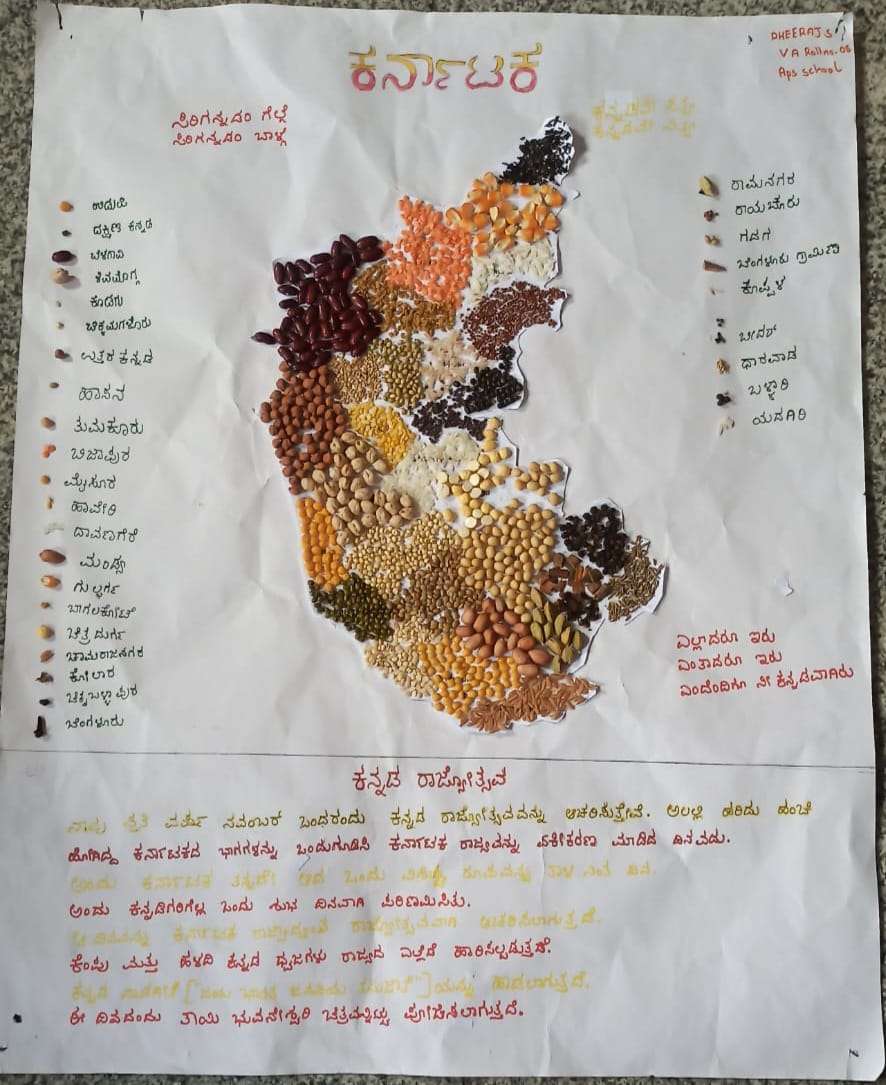 ಕರ್ನಾಟಕ
DHEERAJ S
V A Roll no. 06
Aps school
ಸಿರಿಗನ್ನಡಂ ಗೆಲ್ಗೆ
ಸಿರಿಗನ್ನಡಂ ಬಾಳ್ಗೆ
ಕನ್ನಡವೇ ಸತ್ಯ
ಕನ್ನಡವೇ ನಿತ್ಯ
ಉಡುಪಿ
ದಕ್ಷಿಣ ಕನ್ನಡ
ಬೆಳಗಾವಿ
ಶಿವಮೊಗ್ಗ
ಕೊಡಗು
ಚಿಕ್ಕಮಗಳೂರು
ಉತ್ತರ ಕನ್ನಡ
ಹಾಸನ
ತುಮಕೂರು
ಬಿಜಾಪುರ
ಮೈಸೂರ
ಹಾವೇರಿ
ದಾವಣಗೆರೆ
ಮಂಡ್ಯ
ಗುಲ್ಬರ್ಗ
ಬಾಗಲಕೋಟೆ
ಚಿತ್ರದುರ್ಗ
ಚಾಮರಾಜನಗರ
ಕೋಲಾರ
ಚಿಕ್ಕಬಳ್ಳಾಪುರ
ಬೆಂಗಳೂರು
ರಾಮನಗರ
ರಾಯಚೂರು
ಗದಗ
ಬೆಂಗಳೂರು ಗ್ರಾಮೀಣ
ಕೊಪ್ಪಳ
ಬೀದರ್
ಧಾರವಾಡ
ಬಳ್ಳಾರಿ
ಯದಗಿರಿ
ಎಲ್ಲಾದರೂ ಇರು
ಎಂತಾದರೂ ಇರು
ಎಂದೆಂದಿಗೂ ನೀ ಕನ್ನಡವಾಗಿರು
ಕನ್ನಡ ರಾಜ್ಯೋತ್ಸವ
ನಾವು ಪ್ರತಿ ವರ್ಷ ನವಂಬರ್ ಒಂದರಂದು ಕನ್ನಡ ರಾಜ್ಯೋತ್ಸವವನ್ನು ಆಚರಿಸುತ್ತೇವೆ. ಅಲಲ್ಲಿ ಹರಿದು ಹಂಚಿ
ಹೋಗಿದ್ದ ಕರ್ನಾಟಕದ ಭಾಗಗಳನ್ನು ಒಂದುಗೂಡಿಸಿ ಕರ್ನಾಟಕ ರಾಜ್ಯವನ್ನು ಏಕೀಕರಣ ಮಾಡಿದ ದಿನವದು.
ಅಂದು ಕರ್ನಾಟಕ ತನ್ನದೇ ಆದ ಒಂದು ವಿಶಿಷ್ಟ ರೂಪವನ್ನು ತಾಳಿ ನಿಂತ ದಿನ.
ಅಂದು ಕನ್ನಡಿಗರಿಗೆಲ್ಲ ಒಂದು ಶುಭ ದಿನವಾಗಿ ಪರಿಣಮಿಸಿತು.
ಈ ದಿನವನ್ನು ಕರ್ನಾಟಕ ರಾಜ್ಯಾದ್ಯಂತ ರಾಜ್ಯೋತ್ಸವವಾಗಿ ಆಚರಿಸಲಾಗುತ್ತದೆ.
ಕೆಂಪು ಮತ್ತು ಹಳದಿ ಕನ್ನಡ ಧ್ವಜಗಳು ರಾಜ್ಯದ ಎಲ್ಲೆಡೆ ಹಾರಿಸಲ್ಪಡುತ್ತದೆ.
ಕನ್ನಡ ನಾಡಗೀತೆ ["ಜಯ ಭಾರತ ಜನನಿಯ ತನುಜಾತೆ"]ಯನ್ನು ಹಾಡಲಾಗುತ್ತದೆ.
ಈ ದಿವದಂದು ತಾಯಿ ಭುವನೇಶ್ವರಿ ಚಿತ್ರವನ್ನಿಟ್ಟು ಪೂಜಿಸಲಾಗುತ್ತದೆ.